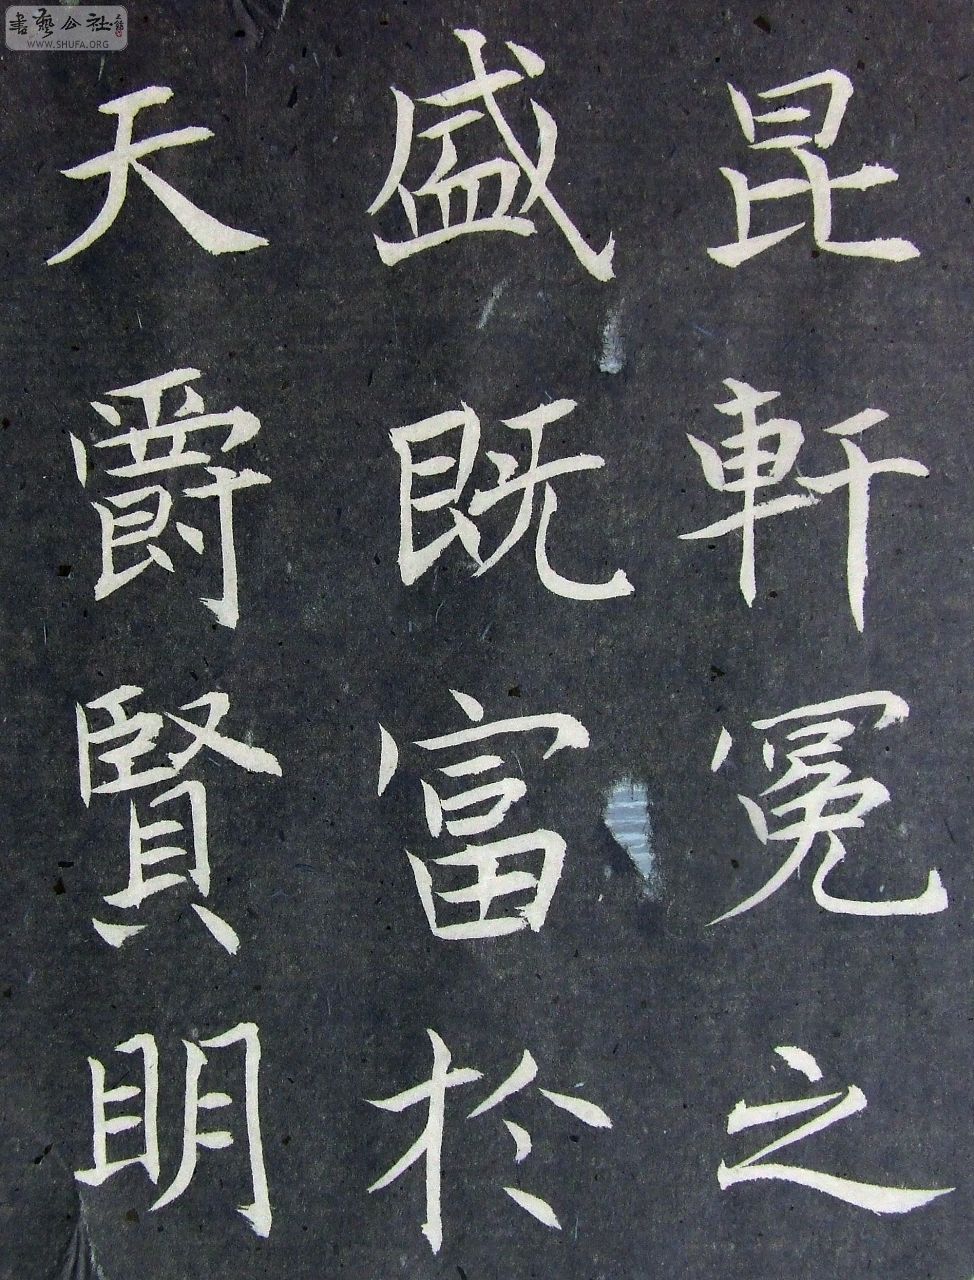 書藝公社
WWW.SHUFA.ORG
昆軒冕之
盛既富於
天爵賢明